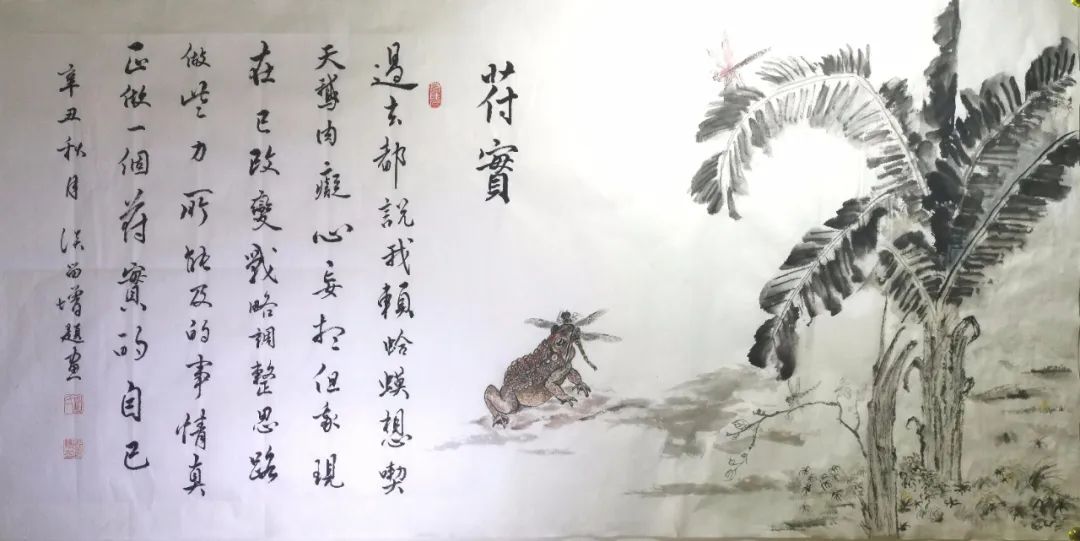 苻實
過去都説我賴蛤蟆想喫
天鵝肉癡心妄想但我現
在已改變戰略調整思路
做些力所能及的事情真
正做一個苻實的自己
辛丑秋月 增題畫